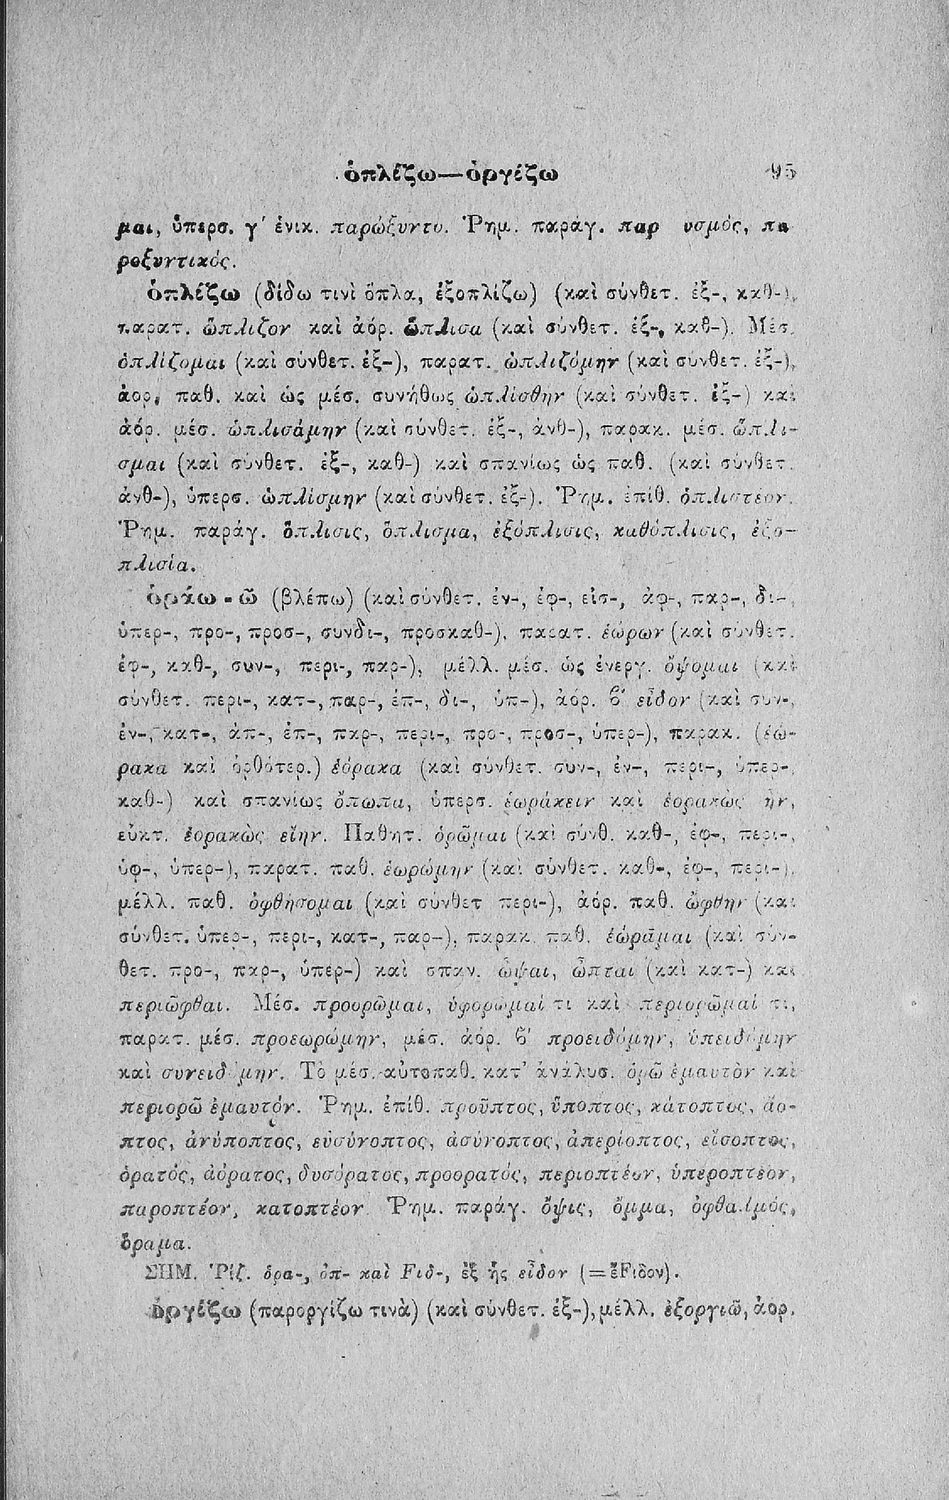 ὁπλίζω—ὀργίζω 95
μαι, ὑπερσ. γ΄ ἑνικ. παρώξυντο. Ῥημ. παράγ. παρ υσμός, πα
ροξυντικός.
ὁπλίζω (δίδω τινὶ ὅπλα, ἐξοπλίζω) (καὶ σύνθετ. ἐξ-, καθ-),
παρατ. ὥπλιζον καὶ ἀόρ. ὥπλισα (καὶ σύνθετ. ἐξ-, καθ-). Μέσ.
ὁπλίζομαι (καὶ σύνθετ. ἐξ-), παρατ. ὡπλιζόμην (καὶ σύνθετ. ἐξ-),
ἀορ. παθ. καὶ ὡς μέσ. συνήθως ὡπλίσθην (καὶ σύνθετ. ἐξ-) καὶ
ἀόρ. μέσ. ὡπλισάμην (καὶ σύνθετ. ἐξ-, ἀνθ-), παρακ. μέσ. ὥπλι-
σμαι (καὶ σύνθετ. ἐξ-, καθ-) καὶ σπανίως ὡς παθ. (καὶ σύνθετ.
ἀνθ-), ὑπερσ. ὡπλίσμην (καὶ σύνθετ. ἐξ-). Ῥημ. ἐπίθ. ὁπλιστέον.
Ῥημ. παράγ. ὅπλισις, ὅπλισμα, ἐξόπλισις, καθόπλισις, ἐξο-
πλισία.
ὁράω - ῶ (βλέπω) (καὶ σύνθετ. ἐν-, ἐφ-, εἰσ-, ἀφ-, παρ-, δι-,
ὑπερ-, προ-, προσ-, συνδι-, προσκαθ-), παρατ. ἑώρων (καὶ σύνθετ.
ἐφ-, καθ-, συν-, περι-, παρ-), μέλλ. μέσ. ὡς ἐνεργ. ὄψομαι (καὶ
σύνθετ. περι-, κατ-, παρ-, ἐπ-, δι-, ὑπ-), ἀόρ. β΄ εἶδον (καὶ συν-,
ἐν-, κατ-, ἀπ-, ἐπ-, παρ-, περι-, προ-, προσ-, ὑπερ-), παρακ. (ἑώ-
ρακα καὶ ὀρθότερ.) ἑόρακα (καὶ σύνθετ. συν-, ἐν-, περι-, ὑπερ-,
καθ-) καὶ σπανίως ὄπωπα, ὑπερσ. ἑωράκειν καὶ ἑορακὼς ἦν,
εὐκτ. ἑορακὼς εἴην. Παθητ. ὁρῶμαι (καὶ σύνθ. καθ-, ἐφ-, περι-,
ὑφ-, ὑπερ-), παρατ. παθ. ἑωρώμην (καὶ σύνθετ. καθ-, ἐφ-, περι-),
μέλλ. παθ. ὀφθήσομαι (καὶ σύνθετ περι-), ἀόρ. παθ. ὤφθην (καὶ
σύνθετ. ὑπερ-, περι-, κατ-, παρ-), παρακ. παθ. ἑώραμαι (καὶ σύν-
θετ. προ-, παρ-, ὑπερ-) καὶ σπαν. ὦψαι, ὦπται (καὶ κατ-) καὶ
περιῶφθαι. Μέσ. προορῶμαι, ὑφορῶμαί τι καὶ περιορῶμαί τι,
παρατ. μέσ. προεωρώμην, μέσ. ἀόρ. β΄ προειδόμην, ὑπειδόμην
καὶ συνειδ μην. Τὸ μέσ. αὐτοπαθ. κατ' ἀνάλυσ. ὁρῶ ἐμαυτὸν καὶ
περιορῶ ἐμαυτόν. Ῥημ. ἐπίθ. προῦπτος, ὕποπτος, κάτοπτος, ἄο-
πτος, ἀνύποπτος, εὐσύνοπτος, ἀσύνοπτος, ἀπερίοπτος, εἴσοπτος,
ὁρατός, ἀόρατος, δυσόρατος, προορατός, περιοπτέον, ὑπεροπτέον,
παροπτέον, κατοπτέον Ῥημ. παράγ. ὄψις, ὄμμα, ὀφθαλμός,
ὅραμα.
ΣΗΜ. Ῥίζ. ὁρα-, ὀπ- καὶ Fιδ-, ἐξ ἧς εἶδον (=ἔFιδον).
ὀργίζω (παροργίζω τινὰ) (καὶ σύνθετ. ἐξ-), μέλλ. ἐξοργιῶ, ἀορ.